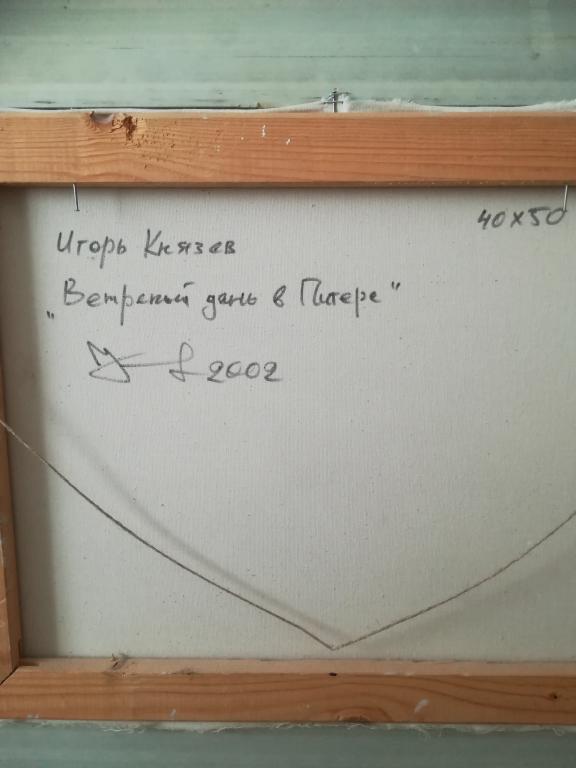 40х50
Игорь Князев
„Ветреный день в Питере"
2002